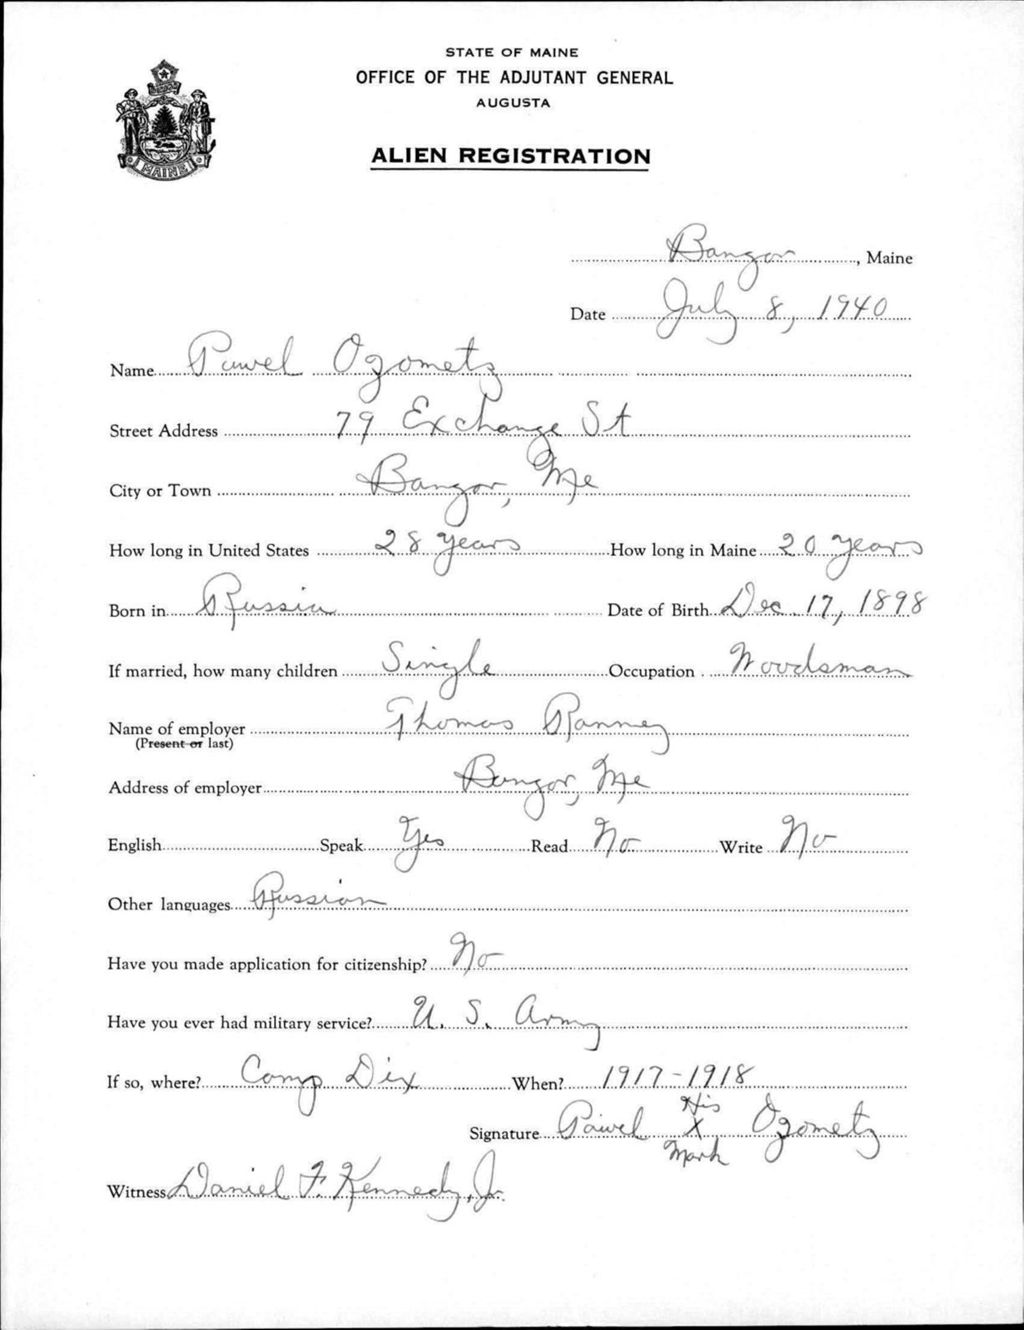 STATE OF MAINE
OFFICE OF THE ADJUTANT GENERAL
AUGUSTA
MAINE
ALIEN REGISTRATION
Bangor, Maine
Date July 8, 1940
Name Pawel Ogometz
Street Address 79 Exchange St
City or Town Bangor, Me
How long in United States 28 years How long in Maine 20 years
Born in Russia Date of Birth Dec. 17, 1898
If married, how many children Single Occupation Woodsman
Name of employer Thomas Ranney
(Present or last)
Address of employer Bangor, Me
English Speak Yes Read No Write No
Other languages Russian
Have you made application for citizenship? No
Have you ever had military service? U. S. Army
If so, where? Camp Dix When? 1917-1918
His
Signature Pawel X Ogometz
Mark
Witness Daniel F. Kennedy, Jr.